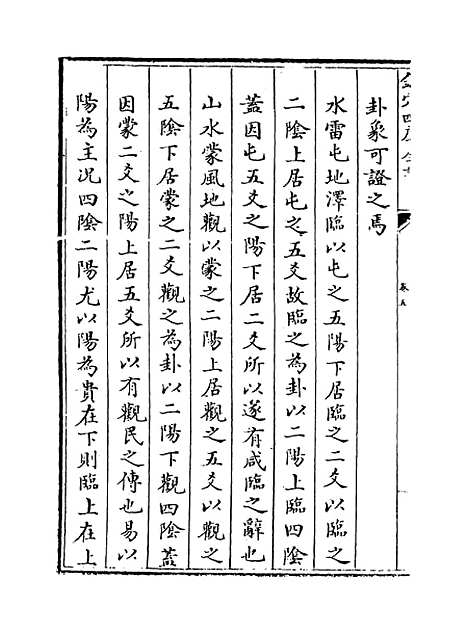 欽定四庫全書
卷五
卦象可證之焉
水雷屯地澤臨以屯之五陽下居臨之二爻以臨之
二陰上居屯之五爻故臨之為卦以二陽上臨四陰
蓋因屯五爻之陽下居二爻所以遂有咸臨之辭也
山水蒙風地觀以蒙之二陽上居觀之五爻以觀之
五陰下居蒙之二爻觀之為卦以二陽下觀四陰蓋
因蒙二爻之陽上居五爻所以有觀民之傳也易以
陽為主况四陰二陽尤以陽為貴在下則臨上在上